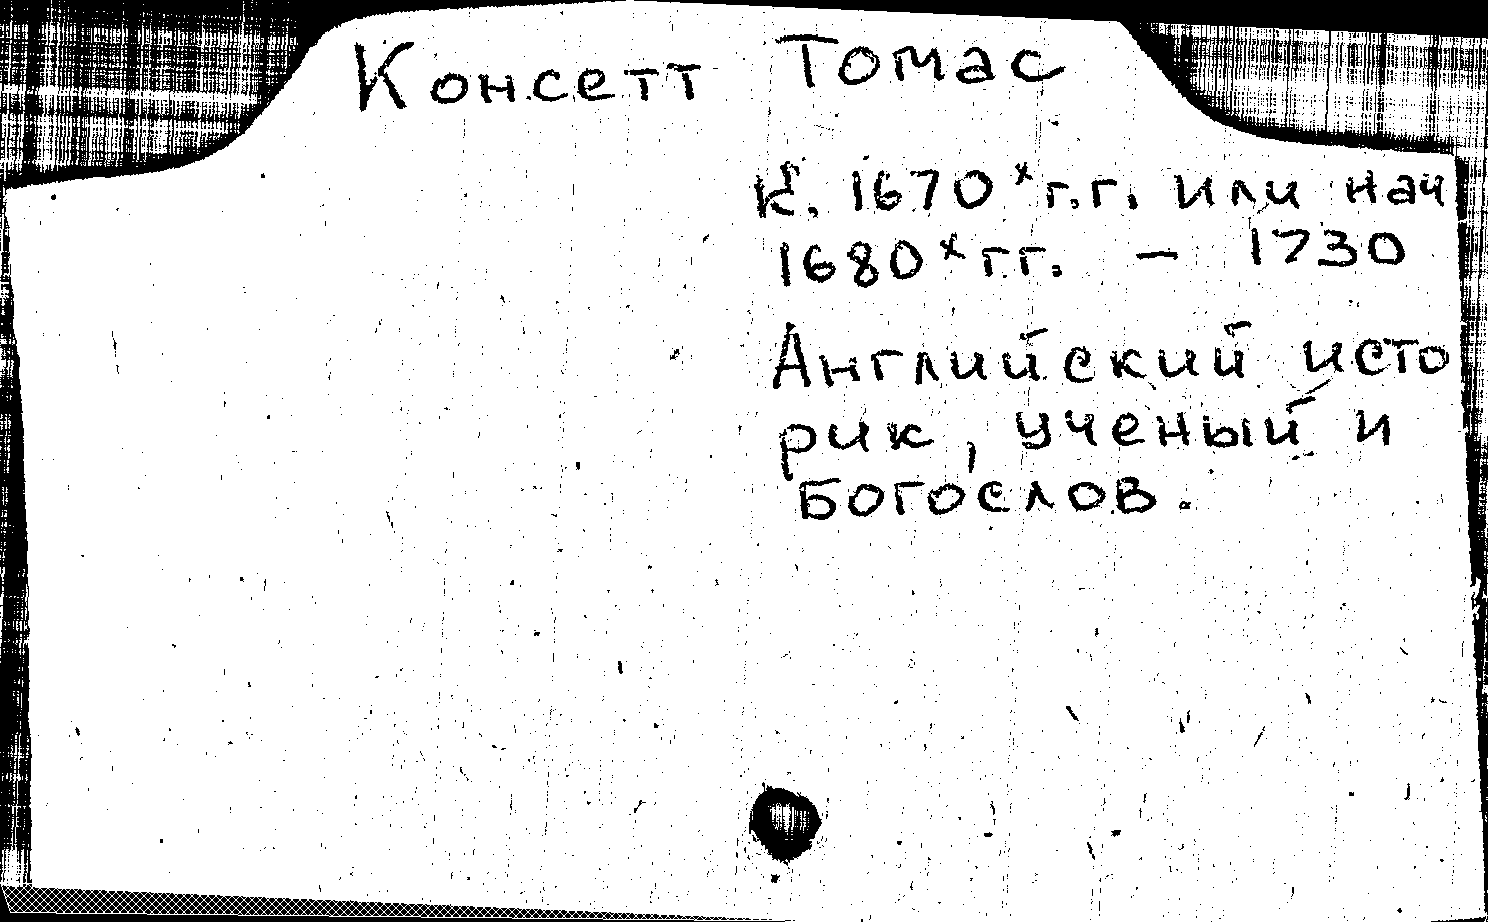 Консетт Томас
к. 1670х г.г. или нач
1680х гг. – 1730
Английский исто
рик, ученый и
богослов.